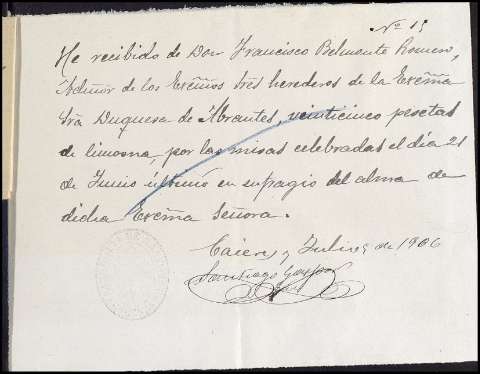 Nº 15
He recibido de Don Francisco Belmonte Romero,
Admor de los Exmos Srs herederos de la Exma
Sra Duquesa de Abrantes, veinticinco pesetas
de limosna, por las misas celebradas el día 21
de Junio último en sufragio del alma de
dicha Exma Señora.
Cáceres y Julio de 1906
Santiago